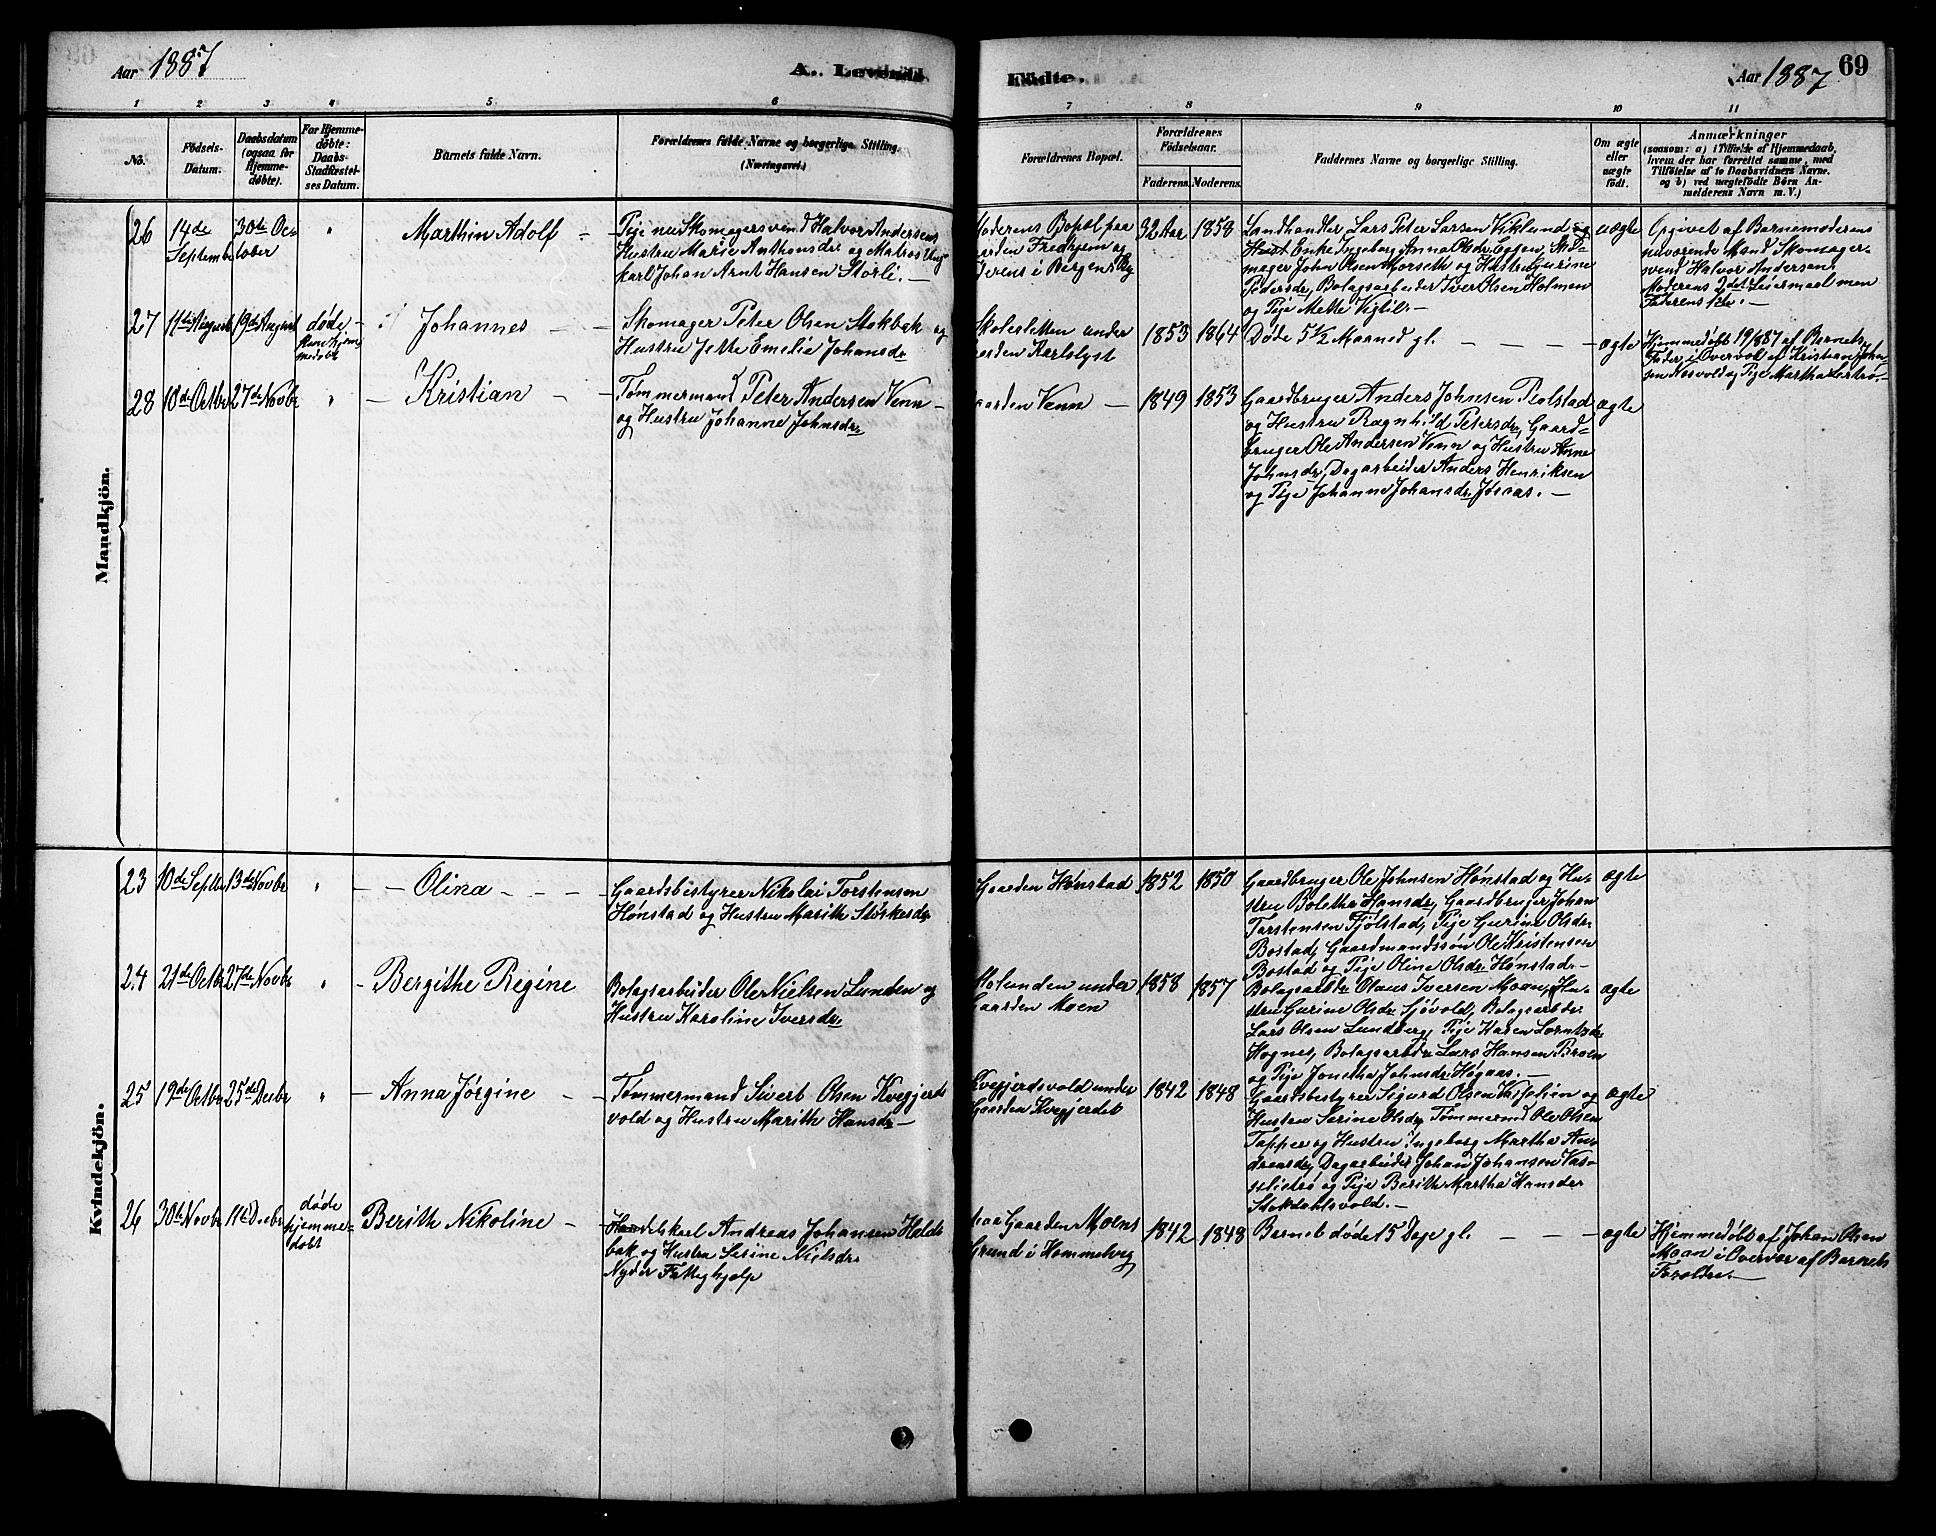 Aar 1887
A. Levende
Fødte.
Aar 1887
69
1 2 3 4 5 6 7 8 9 10 11
No.
Fødsels-
Datum.
Daabsdatum
(ogsaa for
Hjemme-
døbte).
For Hjemme-
døbte:
Daabs-
Stadfæstel-
ses Datum.
Barnets fulde Navn.
Forældrenes fulde Navne og borgerlige Stilling.
(Næringsvei.)
Forældrenes Bopæl.
Forældrenes
Fødselsaar.
Faderens.
Moderens.
Faddernes Navne og borgerlige Stilling.
Om ægte
eller
uægte
født.
Anmærkninger
(saasom: a) i Tilfælde af Hjemmedaab,
hvem der har forrettet samme, med
Tilføielse af to Daabsvidners Navne.
og b) ved uægtefødte Børn An-
melderens Navn m. V.)
Mandkjön.
26
14de
September
30te Oc-
tober
"
Marthin Adolf
Pige nu Skomagersvend Halvor Andersens
Hustru Marie Anthonsdr og Matros Ung-
karl Johan Arnt Hansen Storli.
Moderens Bopæl paa
Gaarden Fredhjem og
Faderens i Bergens By
32 Aar
1858
Landhandler Lars Peter Larsen Viklund og
Enke Ingeborg Anna Olsdr Eggen, Sko-
mager John Olsen Morseth og Hustru Gurine
Pedersdr, Bolagsarbeider Iver Olsen Holmen
og Pige Mette Vigtil.
uægte
Opgivet af Barnemoderens
nuværende Mand Skomager-
svend Halvor Andersen.
Moderens 2det Leiermaal men
Faderens 1ste.
27
11te August
19de August
døde
Johannes
Skomager Peter Olsen Stokbak og
Hustru Jette Emelie Johansdr
Skolesletten under
Gaarden Karlslyst
1853
1864
Døde 5½ Maaned gl.
ægte
Hjemmedøbt 19/8 87 af Barnets
Fader i Overvær af Kristian John-
sen Nosvold og Pige Martha Lertrø.
28
10de Octbr
27de Novbr
"
Kristian
Tømmermand Peter Andersen Venn
og Hustru Johanne Johnsdr
Gaarden Venn
1849
1853
Gaardbruger Anders Johnsen Rolstad
og Hustru Ragnhild Petersdr, Gaard-
bruger Ole Andersen Venn og Hustru Anne
Johnsdr, Dagarbeider Anders Henriksen
og Pige Johanne Johansdr Jøsaas.
ægte
Kvindekjön.
23
10de Septbr
13de Novbr
"
Olina
Gaardsbestyrer Nikolai Torstensen
Hønstad og Hustru Marith Størkesdr
Gaarden Hønstad
1852
1850
Gaardbruger Ole Johnsen Hønstad og Hu-
stru Bolethe Hansdr, Gaardbruger Johan
Torstensen Fjølstad, Pige Gurine Olsdr
Bostad, Gaardmandssøn Ole Kristensen
Bostad og Pige Oline Olsdr Hønstad
ægte
24
21de Octbr
27de Novbr
"
Bergithe Regine
Bolagsarbeider Ole Nielsen Lunden og
Hustru Karoline Iversdr
Molunden under
Gaarden Moen
1858
1857
Bolagsarbdr Olaus Iversen Moan, Hu-
stru Gurine Olsdr Sjøvold, Bolagsarbdr
Lars Olsen Lundberg, Pige Karen Lorntzdr
Hognes, Bolagsarbdr Lars Hansen Broen
og Pige Jonetha Johnsdr Høgaas.
ægte
25
19de Octbr
25de Decbr
"
Anna Jørgine
Tømmermand Sivert Olsen Kvegjerds
vold og Hustru Marith Hansdr
Kvegjerdsvold under
Gaarden Kvegjerdet
1842
1848
Gaardsbestyrer Sigurd Olsen Vasjehin og
Hustru Serine Olsdr, Tømmermd Ole Olsen
Tapper og Hustru Ingeborg Martha An-
dreasdr, Dagarbeider Johan Johansen Vas-
selietrø og Pige Berith Martha Hansdr
Stokdahlsvold.
ægte
26
30te Novbr
11te Decbr
døde
hjemme-
døbt
Berith Nikoline
Handelskarl Andreas Johansen Halds
bak og Hustru Serine Nielsdr
Nyder Fattighjelp
paa Gaarden Moens
Grund i Hommelvig
1842
1848
Barnet døde 15 Dage gl.
ægte
Hjemmedøbt af Johan Olsen
Moan i Overvær af Barnets
Forældre.